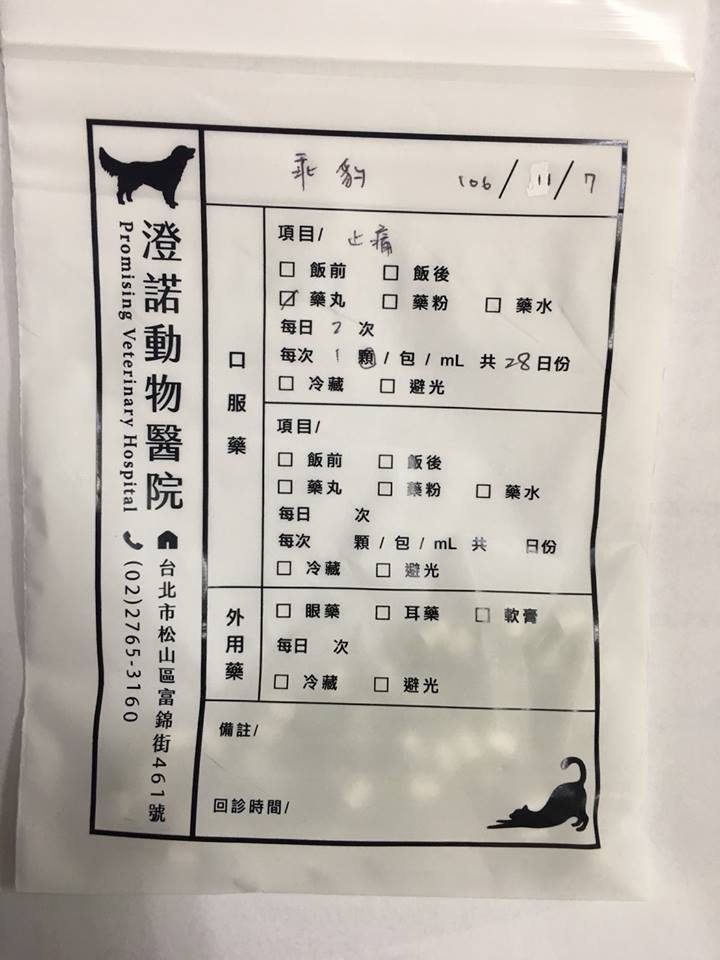 澄諾動物醫院
Promising Veterinary Hospital
台北市松山區富錦街461號
(02)2765-3160
乖豹 106/11/7
口服藥
項目/ 止痛
□ 飯前 □ 飯後
☑ 藥丸 □ 藥粉 □ 藥水
每日 2 次
每次 1 顆 / 包 / mL 共 28 日份
□ 冷藏 □ 避光
項目/
□ 飯前 □ 飯後
□ 藥丸 □ 藥粉 □ 藥水
每日 次
每次 顆 / 包 / mL 共 日份
□ 冷藏 □ 避光
外用藥
□ 眼藥 □ 耳藥 □ 軟膏
每日 次
□ 冷藏 □ 避光
備註/
回診時間/